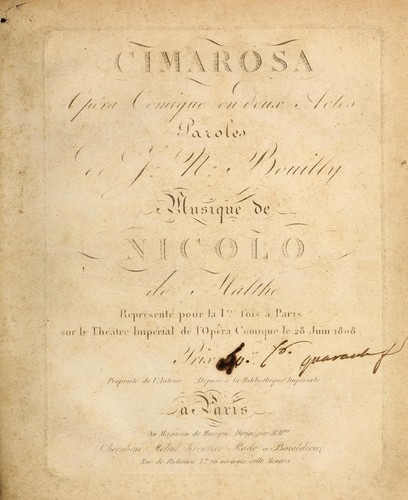 CIMAROSA
Opéra Comique en deux Actes
Paroles
de J. N. Bouilly
Musique de
NICOLO
de Malthe
Représenté pour la 1ere fois à Paris
sur le Théâtre Impérial de l'Opéra Comique le 28 Juin 1808.
Prix
Propriété de l'Auteur Déposé à la Bibliothèque Impériale
à Paris
Au Magasin de Musique, Dirigé par MM.rs
Cherubini Méhul Kreutzer Rode et Boieldieu,
Rue de Richelieu N.º 76 vis-à-vis celle Ménars